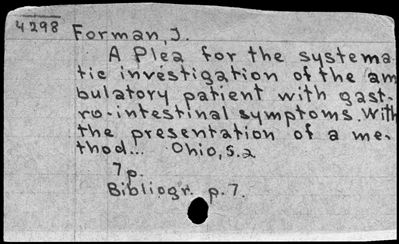 4298
Forman, J.
A Plea for the systema-
tic investigation of the am
bulatory patient with gast-
ro-intestinal symptoms. With
the presentation of a me-
thod... Ohio, S.2
7p.
Bibliogr. p.7.